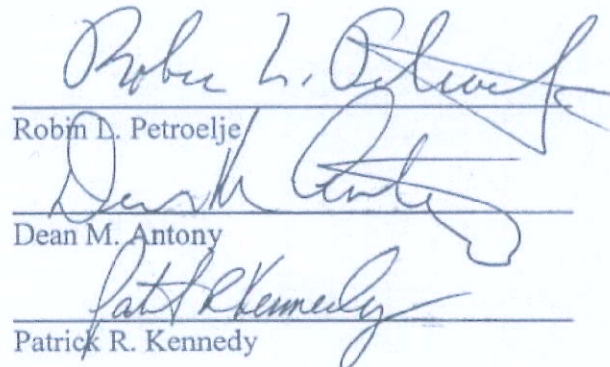 Robin L. Petroelje
Robin L. Petroelje
Dean M. Antony
Dean M. Antony
Patrick R Kennedy
Patrick R. Kennedy